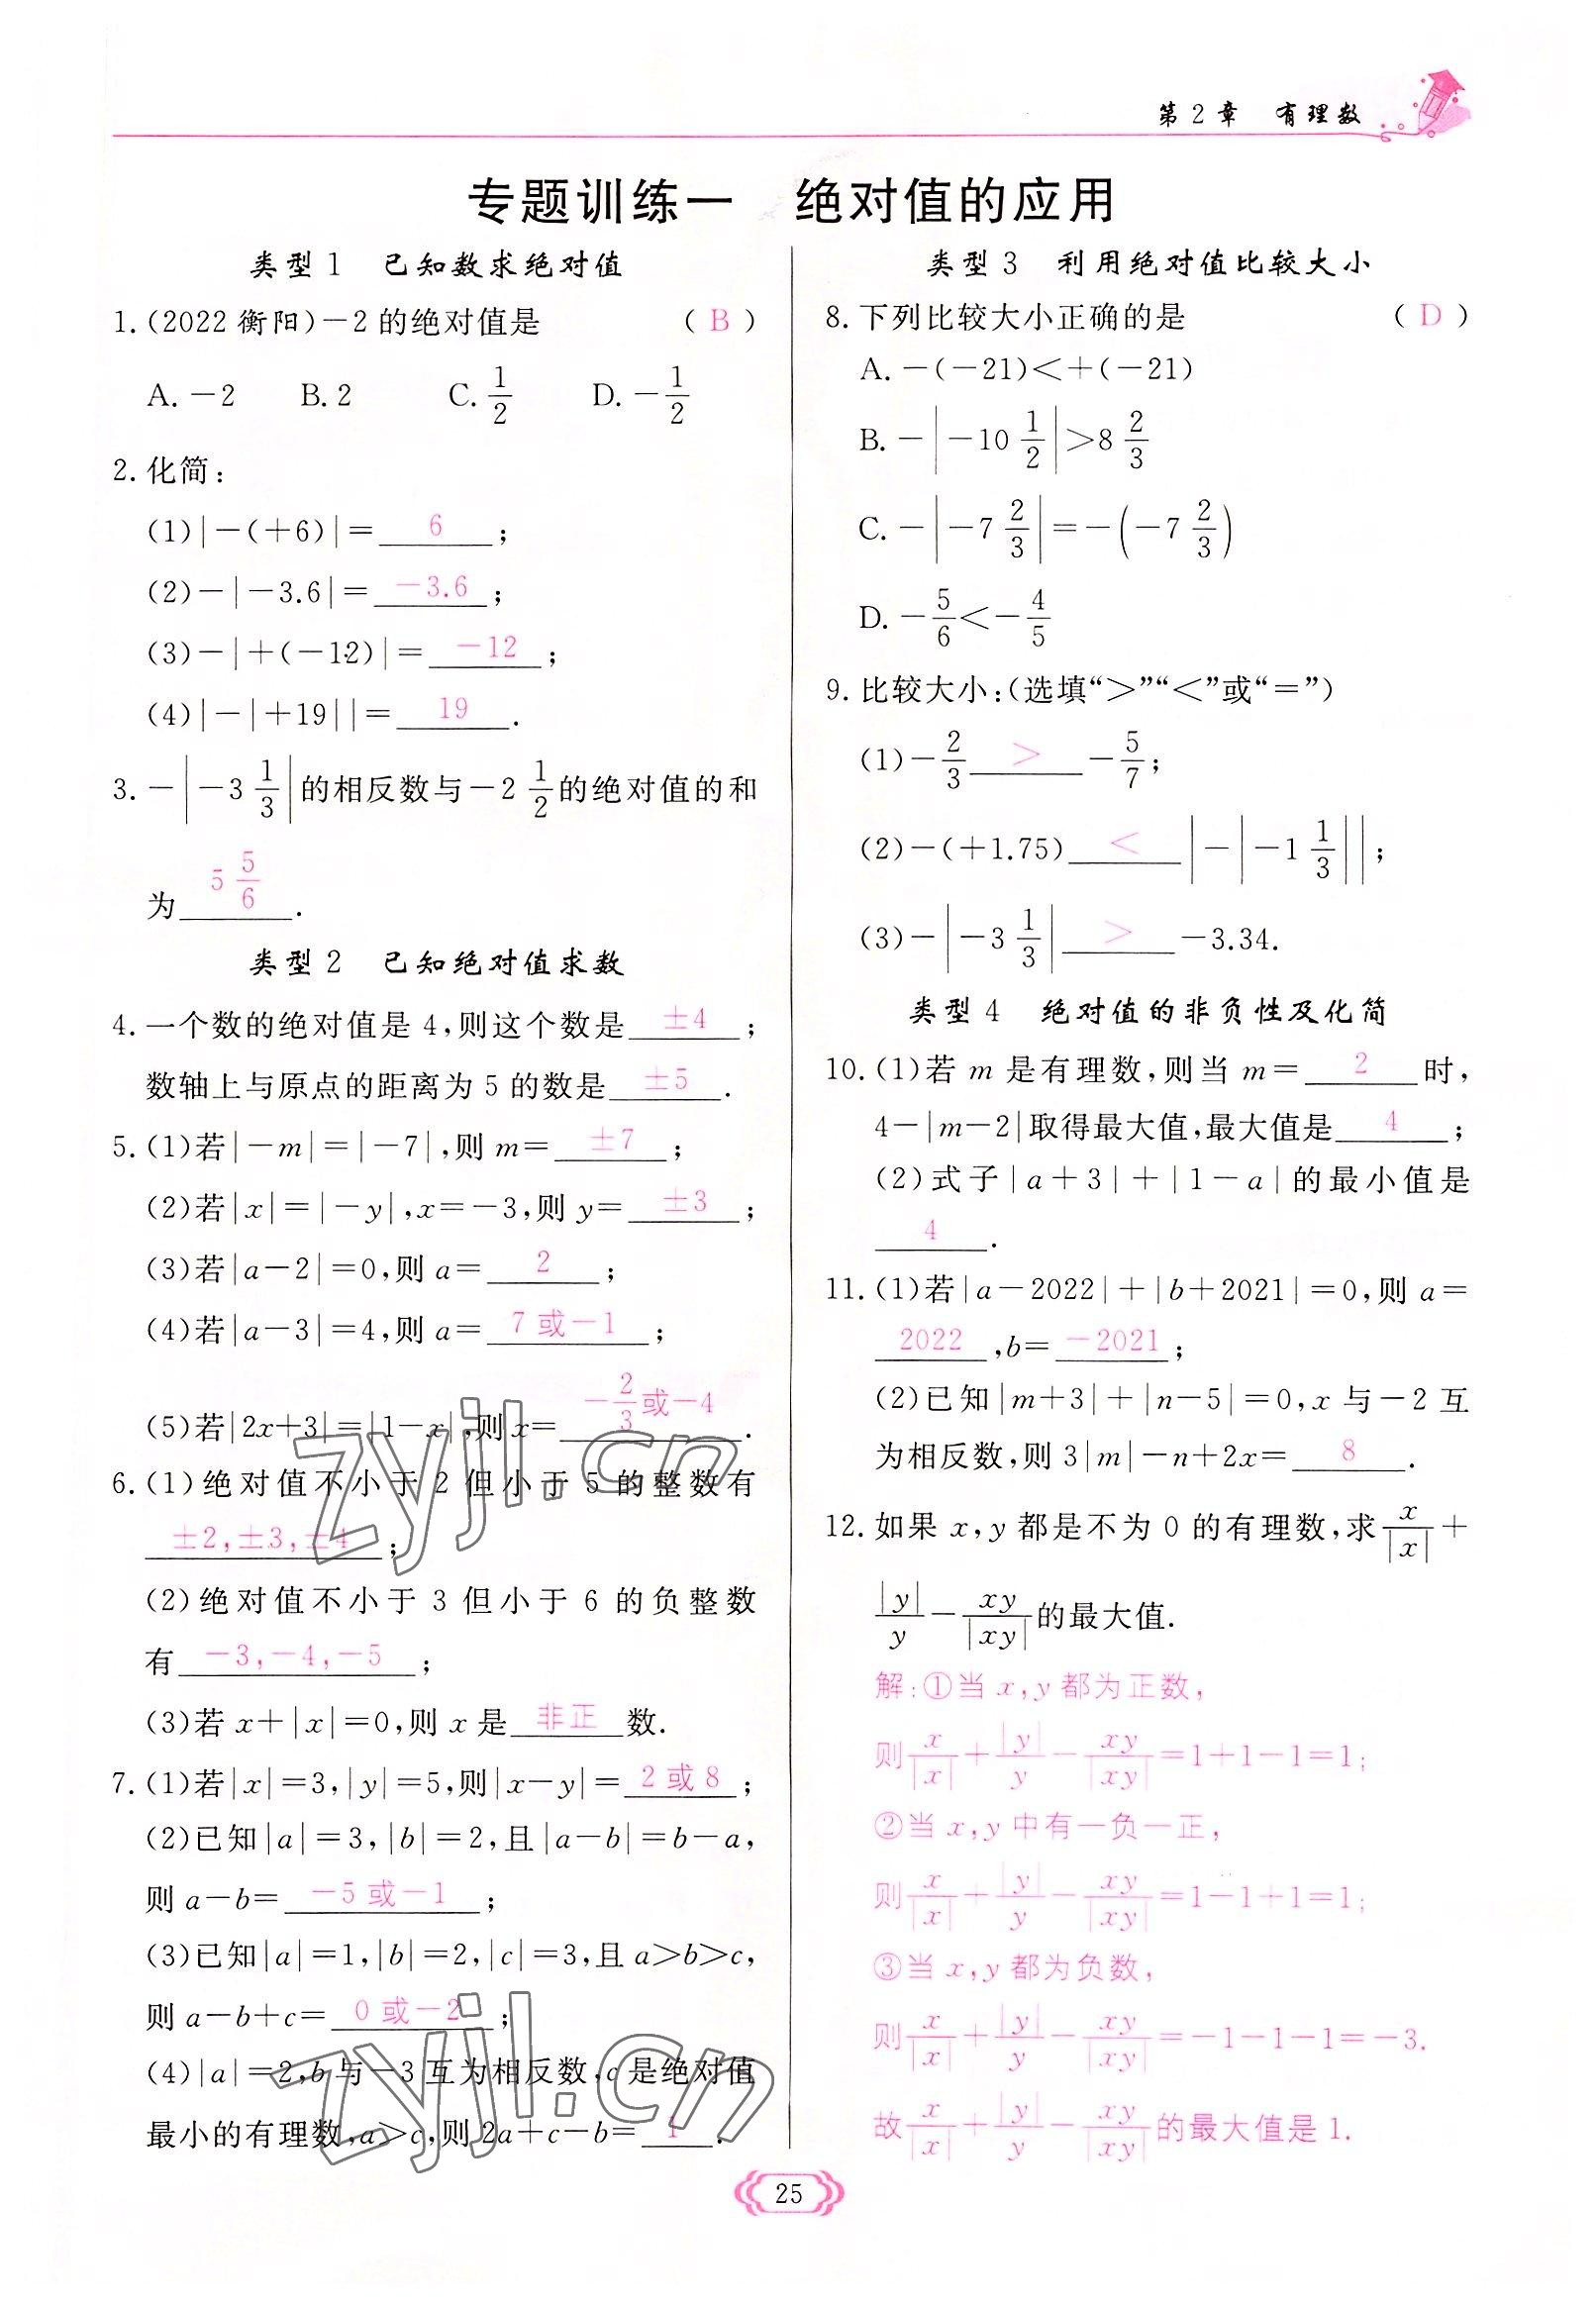 第 2 章　有理数
专题训练一　绝对值的应用
类型 1　已知数求绝对值
1. (2022 衡阳)－2 的绝对值是 ( B )
A. －2　B. 2　C. 1/2　D. －1/2
2. 化简:
(1)|－(＋6)|＝ 6 ;
(2)－|－3.6|＝ －3.6 ;
(3)－|＋(－12)|＝ －12 ;
(4)|－|＋19||＝ 19 .
3. －|－3 1/3|的相反数与－2 1/2的绝对值的和
为 5 5/6 .
类型 2　已知绝对值求数
4. 一个数的绝对值是 4,则这个数是 ±4 ;
数轴上与原点的距离为 5 的数是 ±5 .
5. (1)若|－m|＝|－7|,则 m＝ ±7 ;
(2)若|x|＝|－y|,x＝－3,则 y＝ ±3 ;
(3)若|a－2|＝0,则 a＝ 2 ;
(4)若|a－3|＝4,则 a＝ 7 或－1 ;
(5)若|2x＋3|＝|1－x|,则 x＝ －2/3或－4 .
6. (1)绝对值不小于 2 但小于 5 的整数有
±2,±3,±4 ;
(2)绝对值不小于 3 但小于 6 的负整数
有 －3,－4,－5 ;
(3)若 x＋|x|＝0,则 x 是 非正 数.
7. (1)若|x|＝3,|y|＝5,则|x－y|＝ 2 或 8 ;
(2)已知|a|＝3,|b|＝2,且|a－b|＝b－a,
则 a－b＝ －5 或－1 ;
(3)已知|a|＝1,|b|＝2,|c|＝3,且 a>b>c,
则 a－b＋c＝ 0 或－2 ;
(4)|a|＝2,b 与－3 互为相反数,c 是绝对值
最小的有理数,a>c,则 2a＋c－b＝ 1 .
类型 3　利用绝对值比较大小
8. 下列比较大小正确的是 ( D )
A. －(－21)<＋(－21)
B. －|－10 1/2|>8 2/3
C. －|－7 2/3|＝－(－7 2/3)
D. －5/6<－4/5
9. 比较大小:(选填“>”“<”或“＝”)
(1)－2/3 > －5/7;
(2)－(＋1.75) < |－|－1 1/3||;
(3)－|－3 1/3| > －3.34.
类型 4　绝对值的非负性及化简
10. (1)若 m 是有理数,则当 m＝ 2 时,
4－|m－2|取得最大值,最大值是 4 ;
(2)式子|a＋3|＋|1－a|的最小值是
4 .
11. (1)若|a－2022|＋|b＋2021|＝0,则 a＝
2022 ,b＝ －2021 ;
(2)已知|m＋3|＋|n－5|＝0,x 与－2 互
为相反数,则 3|m|－n＋2x＝ 8 .
12. 如果 x,y 都是不为 0 的有理数,求x/|x|＋
|y|/y－xy/|xy|的最大值.
解:①当 x,y 都为正数,
则x/|x|＋|y|/y－xy/|xy|＝1＋1－1＝1;
②当 x,y 中有一负一正,
则x/|x|＋|y|/y－xy/|xy|＝1－1＋1＝1;
③当 x,y 都为负数,
则x/|x|＋|y|/y－xy/|xy|＝－1－1－1＝－3.
故x/|x|＋|y|/y－xy/|xy|的最大值是 1.
25
zyjl.cn
zyjl.cn